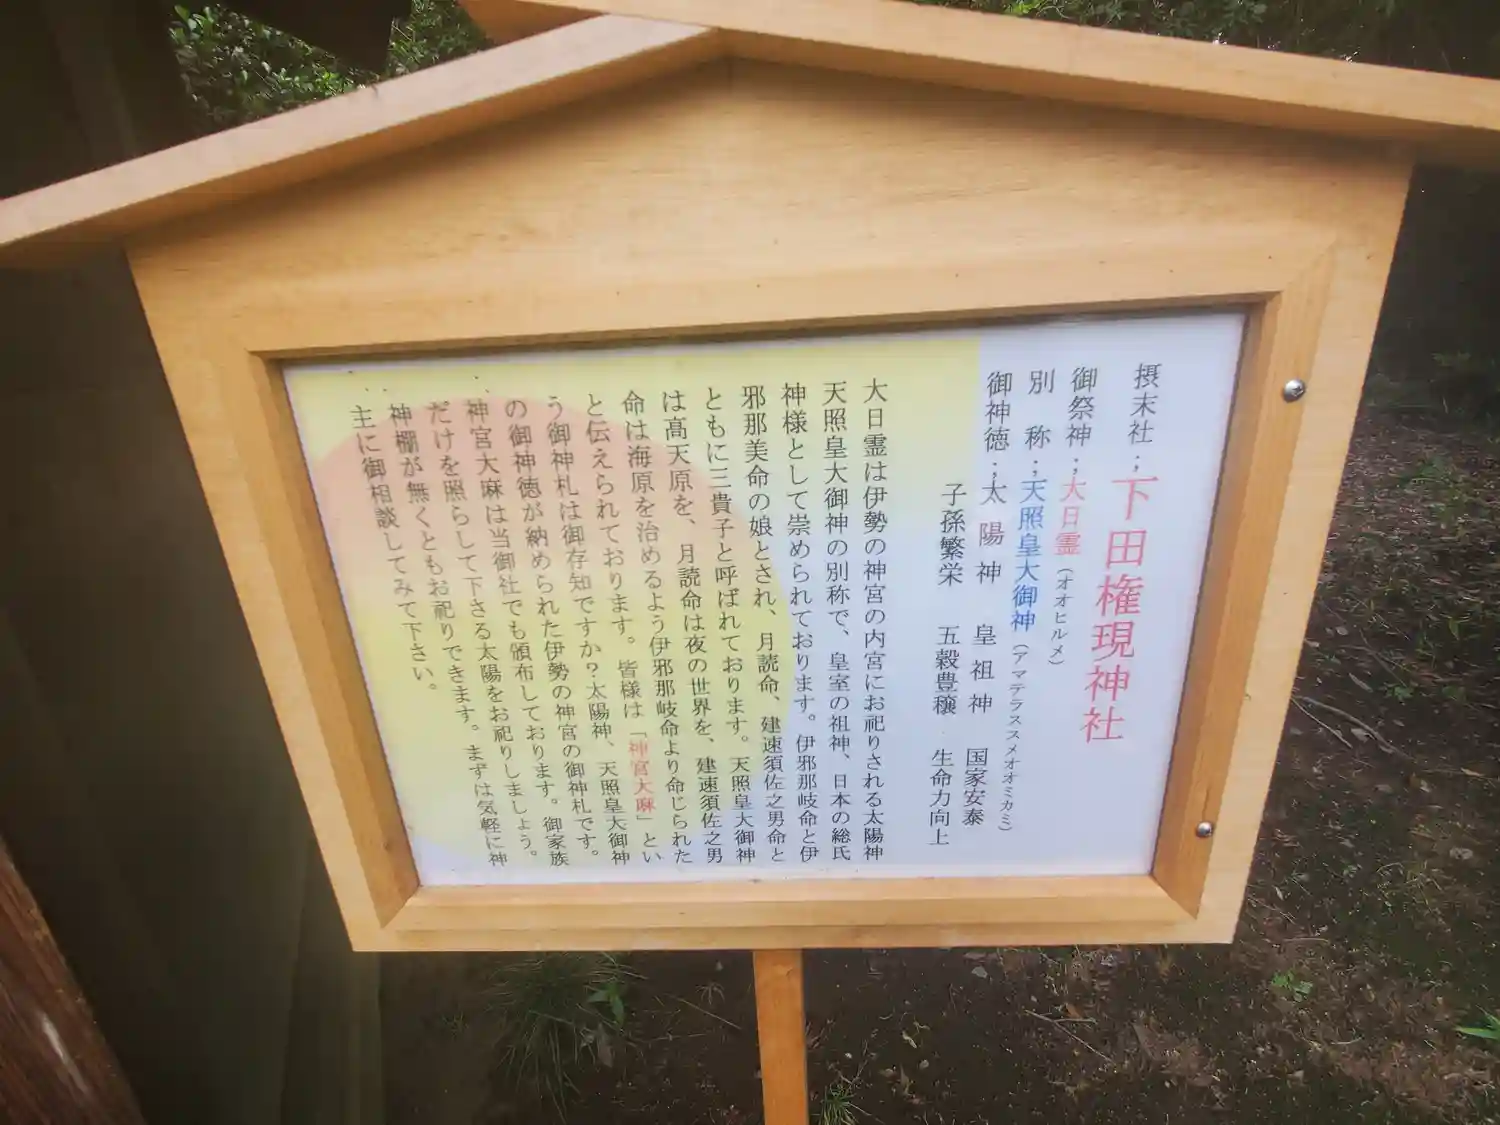 摂末社;下田権現神社
御祭神;大日霊(オオヒルメ)
別 称;天照皇大御神(アマテラススメオオミカミ)
御神徳;太陽神 皇祖神 国家安泰
子孫繁栄 五穀豊穣 生命力向上
大日霊は伊勢の神宮の内宮にお祀りされる太陽神
天照皇大御神の別称で、皇室の祖神、日本の総氏
神様として崇められております。伊邪那岐命と伊
邪那美命の娘とされ、月読命、建速須佐之男命と
ともに三貴子と呼ばれております。天照皇大御神
は高天原を、月読命は夜の世界を、建速須佐之男
命は海原を治めるよう伊邪那岐命より命じられた
と伝えられております。皆様は「神宮大麻」とい
う御神札は御存知ですか?太陽神、天照皇大御神
の御神徳が納められた伊勢の神宮の御神札です。
神宮大麻は当御社でも頒布しております。御家族
だけを照らして下さる太陽をお祀りしましょう。
神棚が無くともお祀りできます。まずは気軽に神
主に御相談してみて下さい。